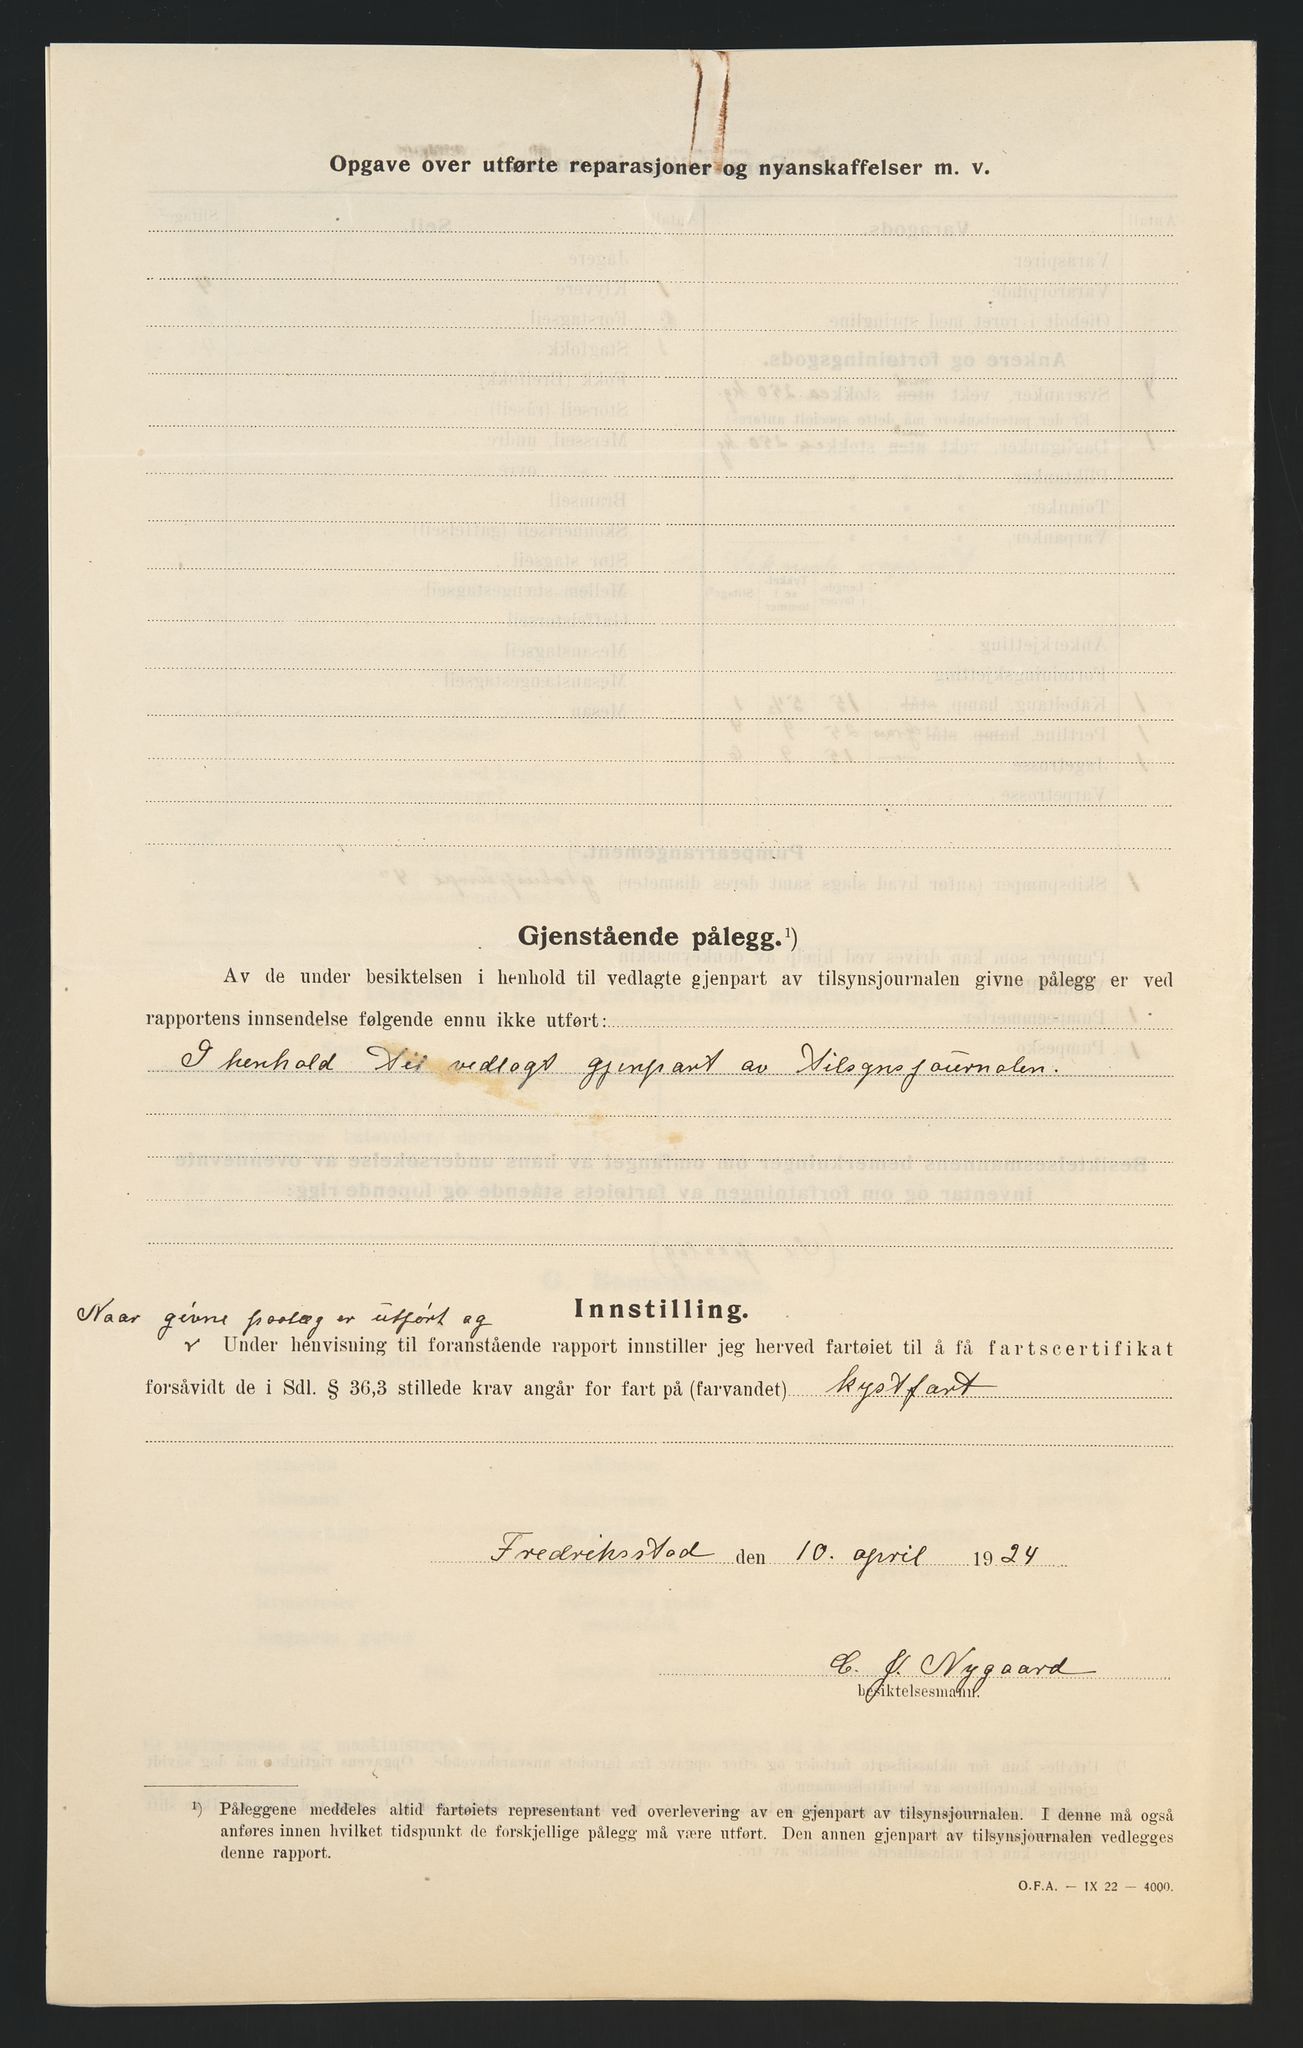 Opgave over utførte reparasjoner og nyanskaffelser m. v.
Gjenstående pålegg.¹)
Av de under besiktelsen i henhold til vedlagte gjenpart av tilsynsjournalen givne pålegg er ved
rapportens innsendelse følgende ennu ikke utført:
I henhold til vedlagt gjenpart av tilsynsjournalen.
Innstilling.
Naar givne paalæg er utført og
Under henvisning til foranstående rapport innstiller jeg herved fartøiet til å få fartscertifikat
forsåvidt de i Sdl. § 36,3 stillede krav angår for fart på (farvandet) kystfart
Fredriksstad den 10. april 1924
C. J. Nygaard
besiktelsesmann.
¹) Påleggene meddeles altid fartøiets representant ved overlevering av en gjenpart av tilsynsjournalen. I denne må også
anføres innen hvilket tidspunkt de forskjellige pålegg må være utført. Den annen gjenpart av tilsynsjournalen vedlegges
denne rapport.
O.F.A. — IX 22 — 4000.